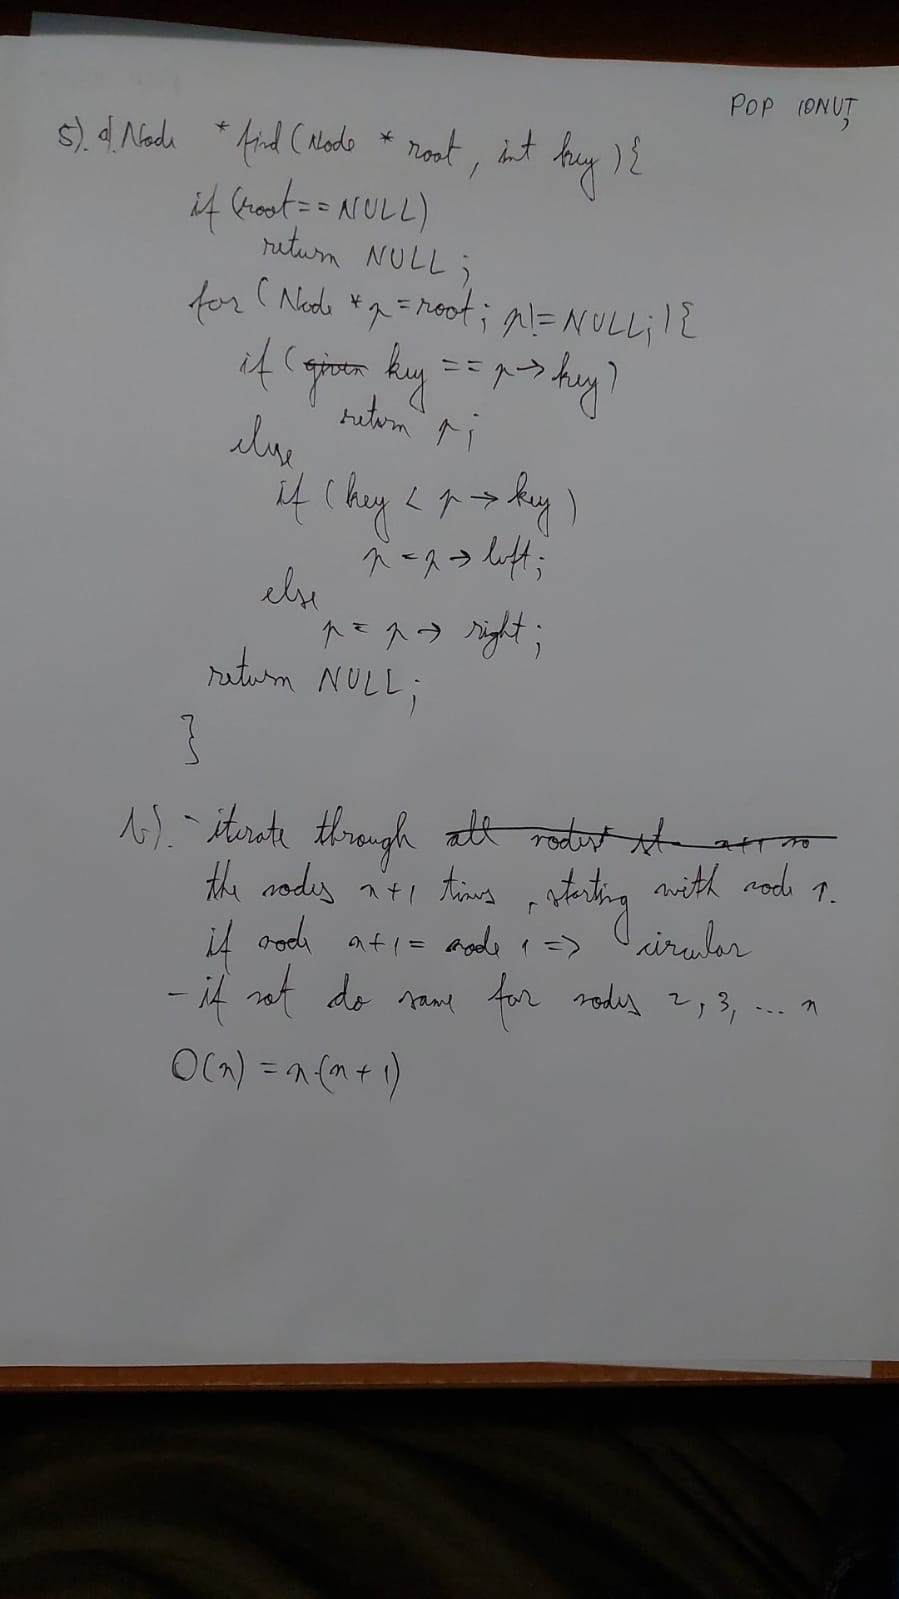 POP IONUȚ
5). a). Node *find (Node * root, int key){
if (root == NULL)
return NULL;
for (Node *p = root; p != NULL; ){
if (given key == p → key)
return p;
else
if (key < p → key)
p = p → left;
else
p = p → right;
return NULL;
}
b). - iterate through all nodes
the nodes n+1 times, starting with node 1.
if node n+1 = node 1 => circular
- if not do same for nodes 2, 3, ... n
O(n) = n·(n+1)